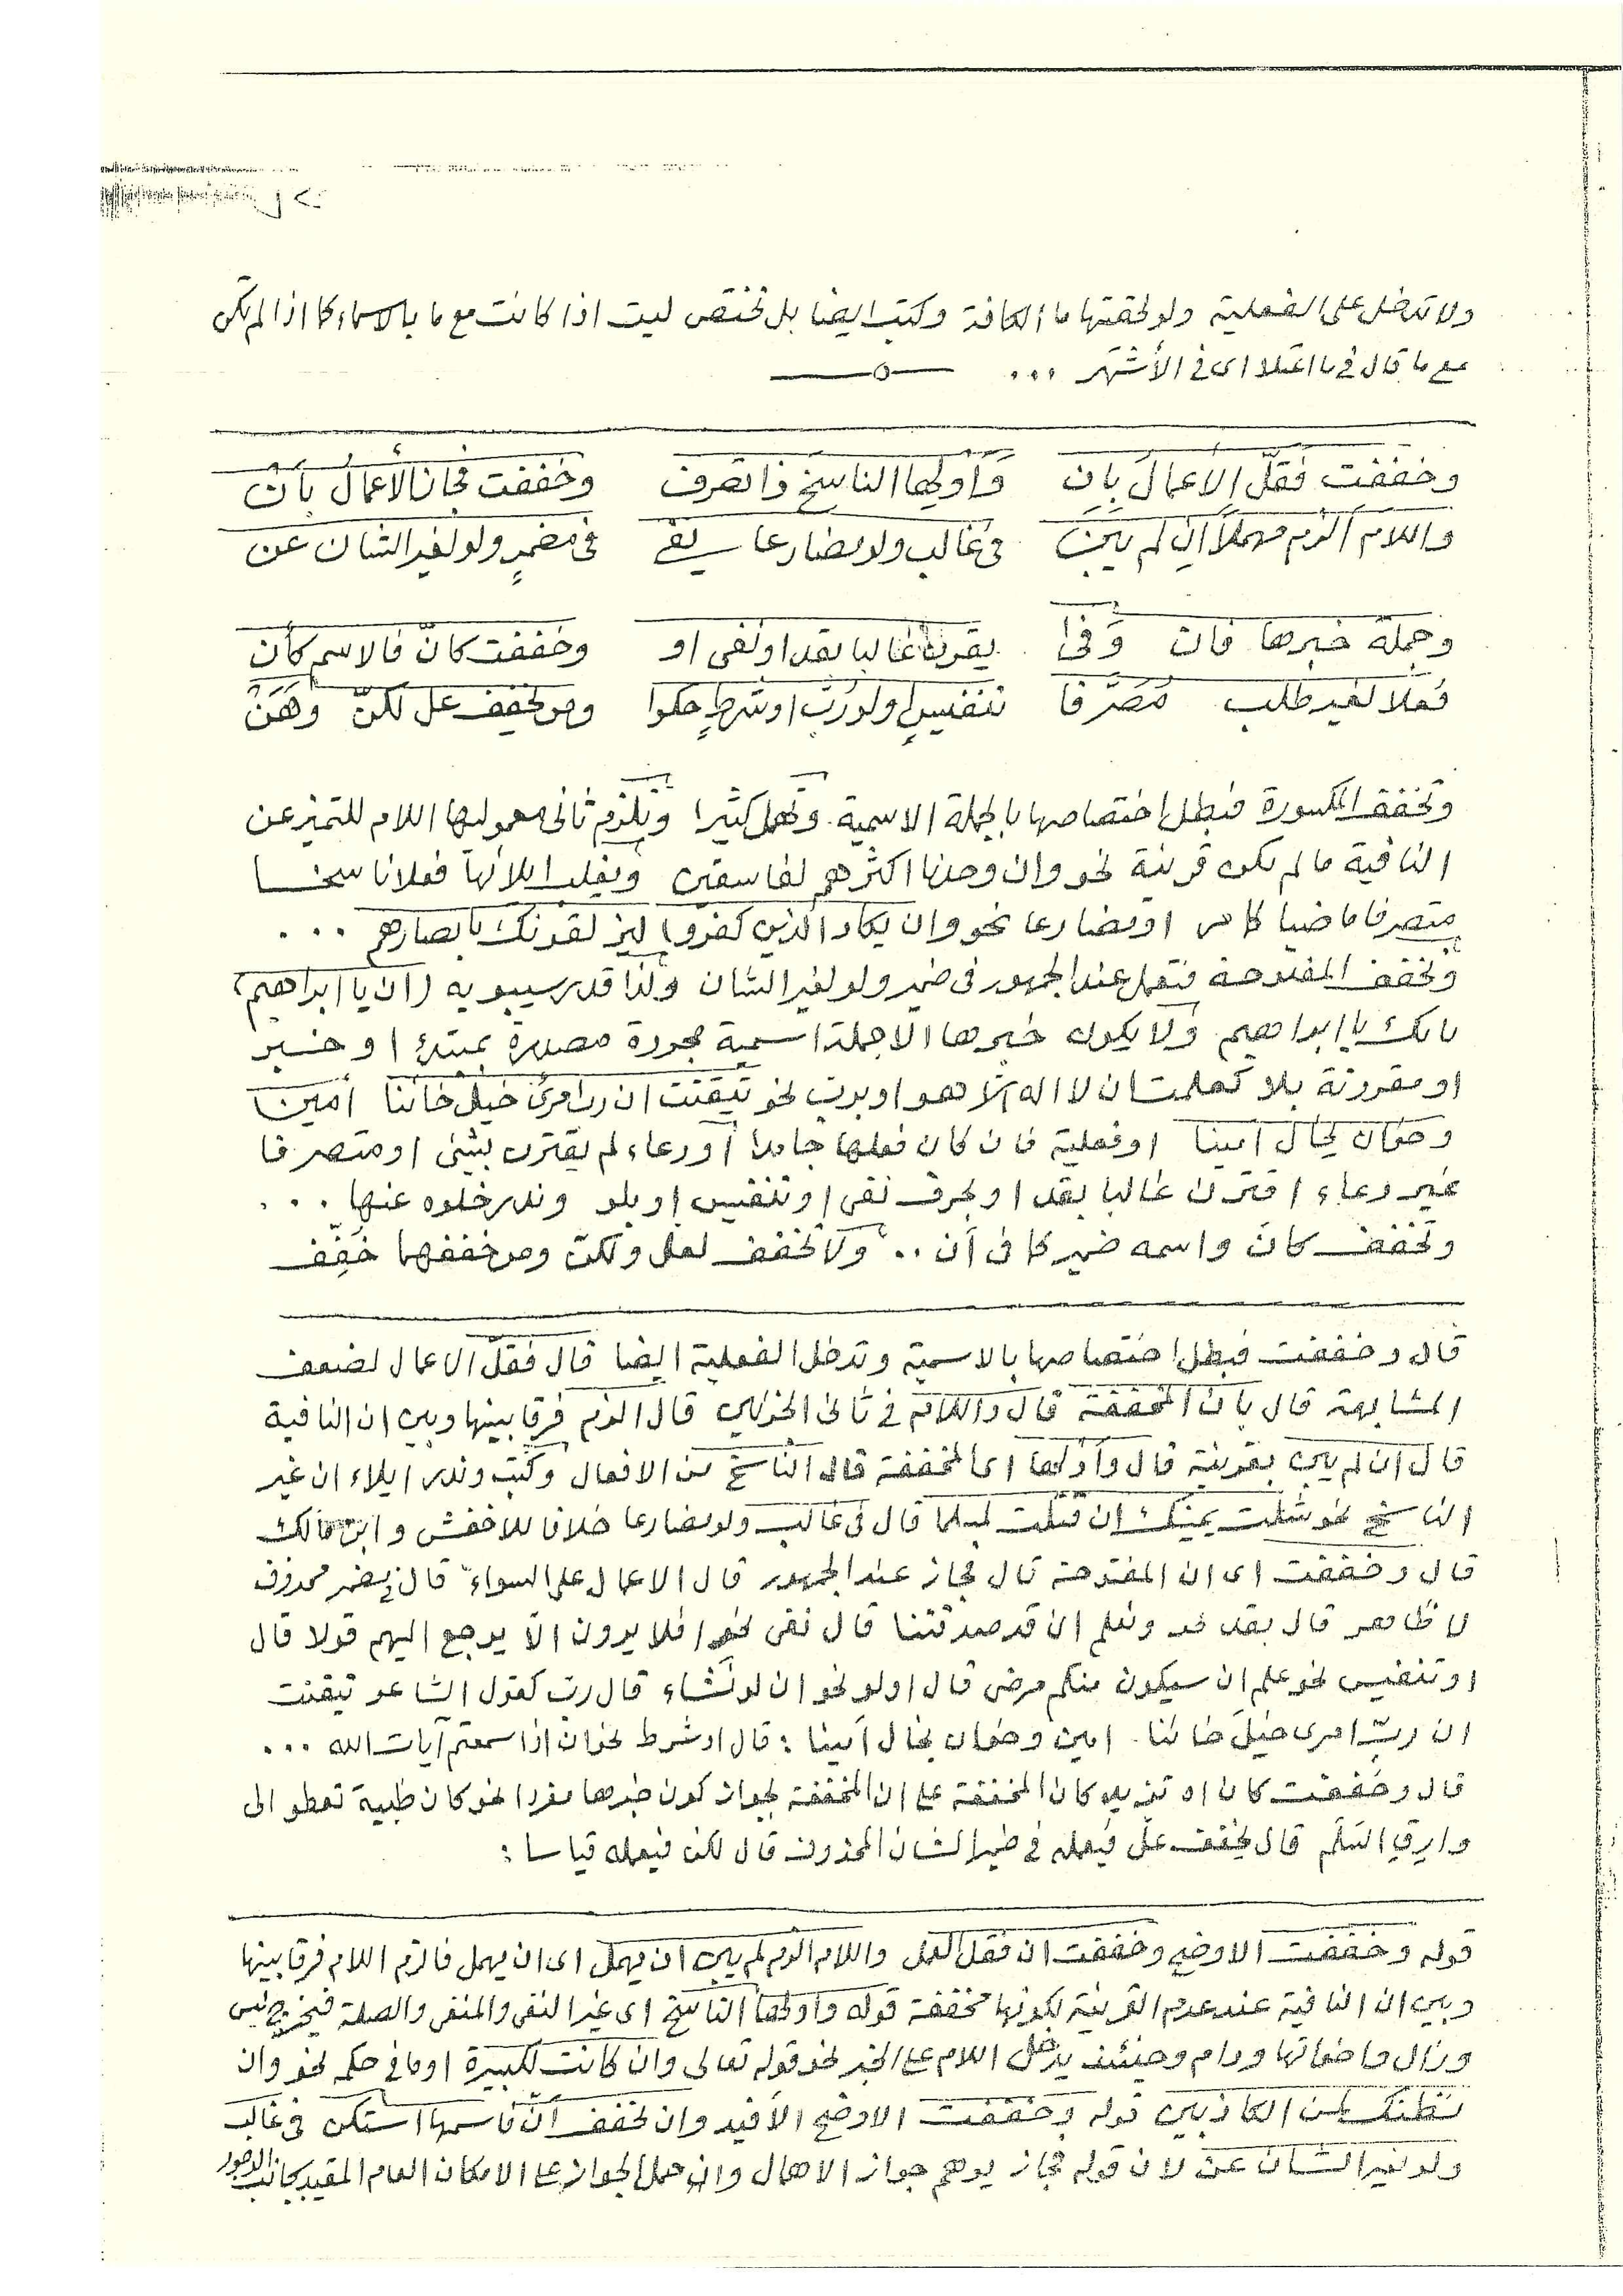 ولا تدخل على الفعلية ولو لحقتها ما الكافة وكتب ايضا بل تختص ليت اذا كانت مع ما بالاسماء كما اذا لم تكن
مع ما قال في ما اعتلا اى في الأشهر ...
وخففت فقلّ الاعمال بإن وَأولها الناسخ ذا تصرف وخففت فجاز الأعمال بأن
واللام الزم مهملا ان لم يبن فى غالب ولو مضارعا يفى فى مضمرٍ ولو لغير الشان عن
وجملة خبرها فان وفى يقرن غالبا بقد او نفى او وخففت كانّ فالاسم كأن
فعلا لغير طلب مصرّفا تنفيسٍ او لو رُبَّ او شرطٍ حكوا ومن يخفف علّ لكنّ وهَن
وتخفف المكسورة فبطل اختصاصها بالجملة الاسمية وتهمل كثيرا وتلزم ثانى معموليها اللام للتميز عن
النافية ما لم يكن قرينة نحو وان وجدنا اكثرهم لفاسقين ويغلب ايلائها فعلا ناسخا
متصرفا ماضيا كما مر او مضارعا نحو وان يكاد الذين كفروا ليزلقونك بابصارهم ...
وتخفف المفتوحة فتعمل عند الجمهور فى ضمير ولو لغير الشان ولذا قدر سيبويه (ان يا ابراهيم)
بانك يا ابراهيم ولا يكون خبرها الا جملة اسمية مجردة مصدرة بمبتدئ او خبر
او مقرونة بلا كعلمت ان لا اله الا هو او برب نحو تيقنت ان رب امرئ خيل خائنا أمين
وخوان يخال امينا او فعلية فان كان فعلها جامدا أو دعاء لم يقترن بشئ او متصرفا
غير دعاء اقترن غالبا بقد او بحرف نفى او تنفيس او بلو وندر خلوه عنها ...
وتخفف كانّ واسمه ضمير كما فى أن .. ولا تخفف لعل ولكن ومن خففهما خَفّف
قال وخففت فبطل اختصاصها بالاسمية وتدخل الفعلية ايضا قال فقلّ الاعمال لضعف
المشابهة قال بان المخففة قال واللام في ثانى الجزئين قال الزم فرقا بينها وبين ان النافية
قال ان لم يبن بقرينة قال وأولها اى المخففة قال الناسخ من الافعال وكتب وندر ايلاء ان غير
الناسخ نحو شلت يمينك ان قتلت لمسلما قال فى غالب ولو مضارعا خلافا للاخفش وابن مالك
قال وخففت اى ان المفتوحة قال فجاز عند الجمهور قال الاعمال على السواء قال في مضمر محذوف
لا ظاهر قال بقد نحو ونعلم ان قد صدقتنا قال نفى نحو افلا يرون الّا يرجع اليهم قولا قال
او تنفيس نحو علم ان سيكون منكم مرضى قال او لو نحو ان لو نشاء قال رب كقول الشاعر تيقنت
ان ربّ امرى خيل خائنا امين وخوان يخال امينا : قال او شرط نحو ان اذا سمعتم آيات الله ...
قال وخففت كان تزيد كان المخففة على ان المخففة بجواز كون خبرها مفردا نحو كان ظبية تعطو الى
وارق السّلم قال يخفف علّ فيعمله في ضمير الشان المحذوف قال لكن فيعمله قياسا :
قوله وخففت الاوضح وخففت ان فقل العمل واللام الزم لم يبن ان يهمل اى ان يهمل فالزم اللام فرقا بينها
وبين ان النافية عند عدم القرينة لكونها مخففة قوله واولها الناسخ اى غير النفى والمنفى والصلة فيخرج ليس
وزال واخواتها ودام وحينئذ يدخل اللام على الخبر نحو قوله تعالى وان كانت لكبيرة او ما في حكمه نحو وان
نظنك لمن الكاذبين قوله وخففت الاوضح الأفيد وان تخفف أنّ فاسمها استكن فى غالب
ولو لغير الشان عن لان قوله فجاز يوهم جواز الاهمال وان حمل الجواز على الامكان العام المقيد بجانب الوجود